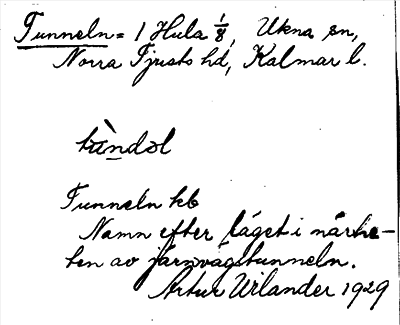 Tunneln = 1 Hula 1/8, Ukna sn,
Norra Tjusts hd, Kalmar l.
tùndəl
Tunneln hb
Namn efter läget i närhe-
ten av järnvägstunneln.
Artur Wilander 1929